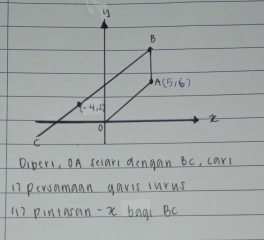 y
B
A(5,6)
(-4,2)
x
O
C
Diberi, OA selari dengan BC, cari
i) persamaan garis lurus
ii) pintasan-x bagi BC